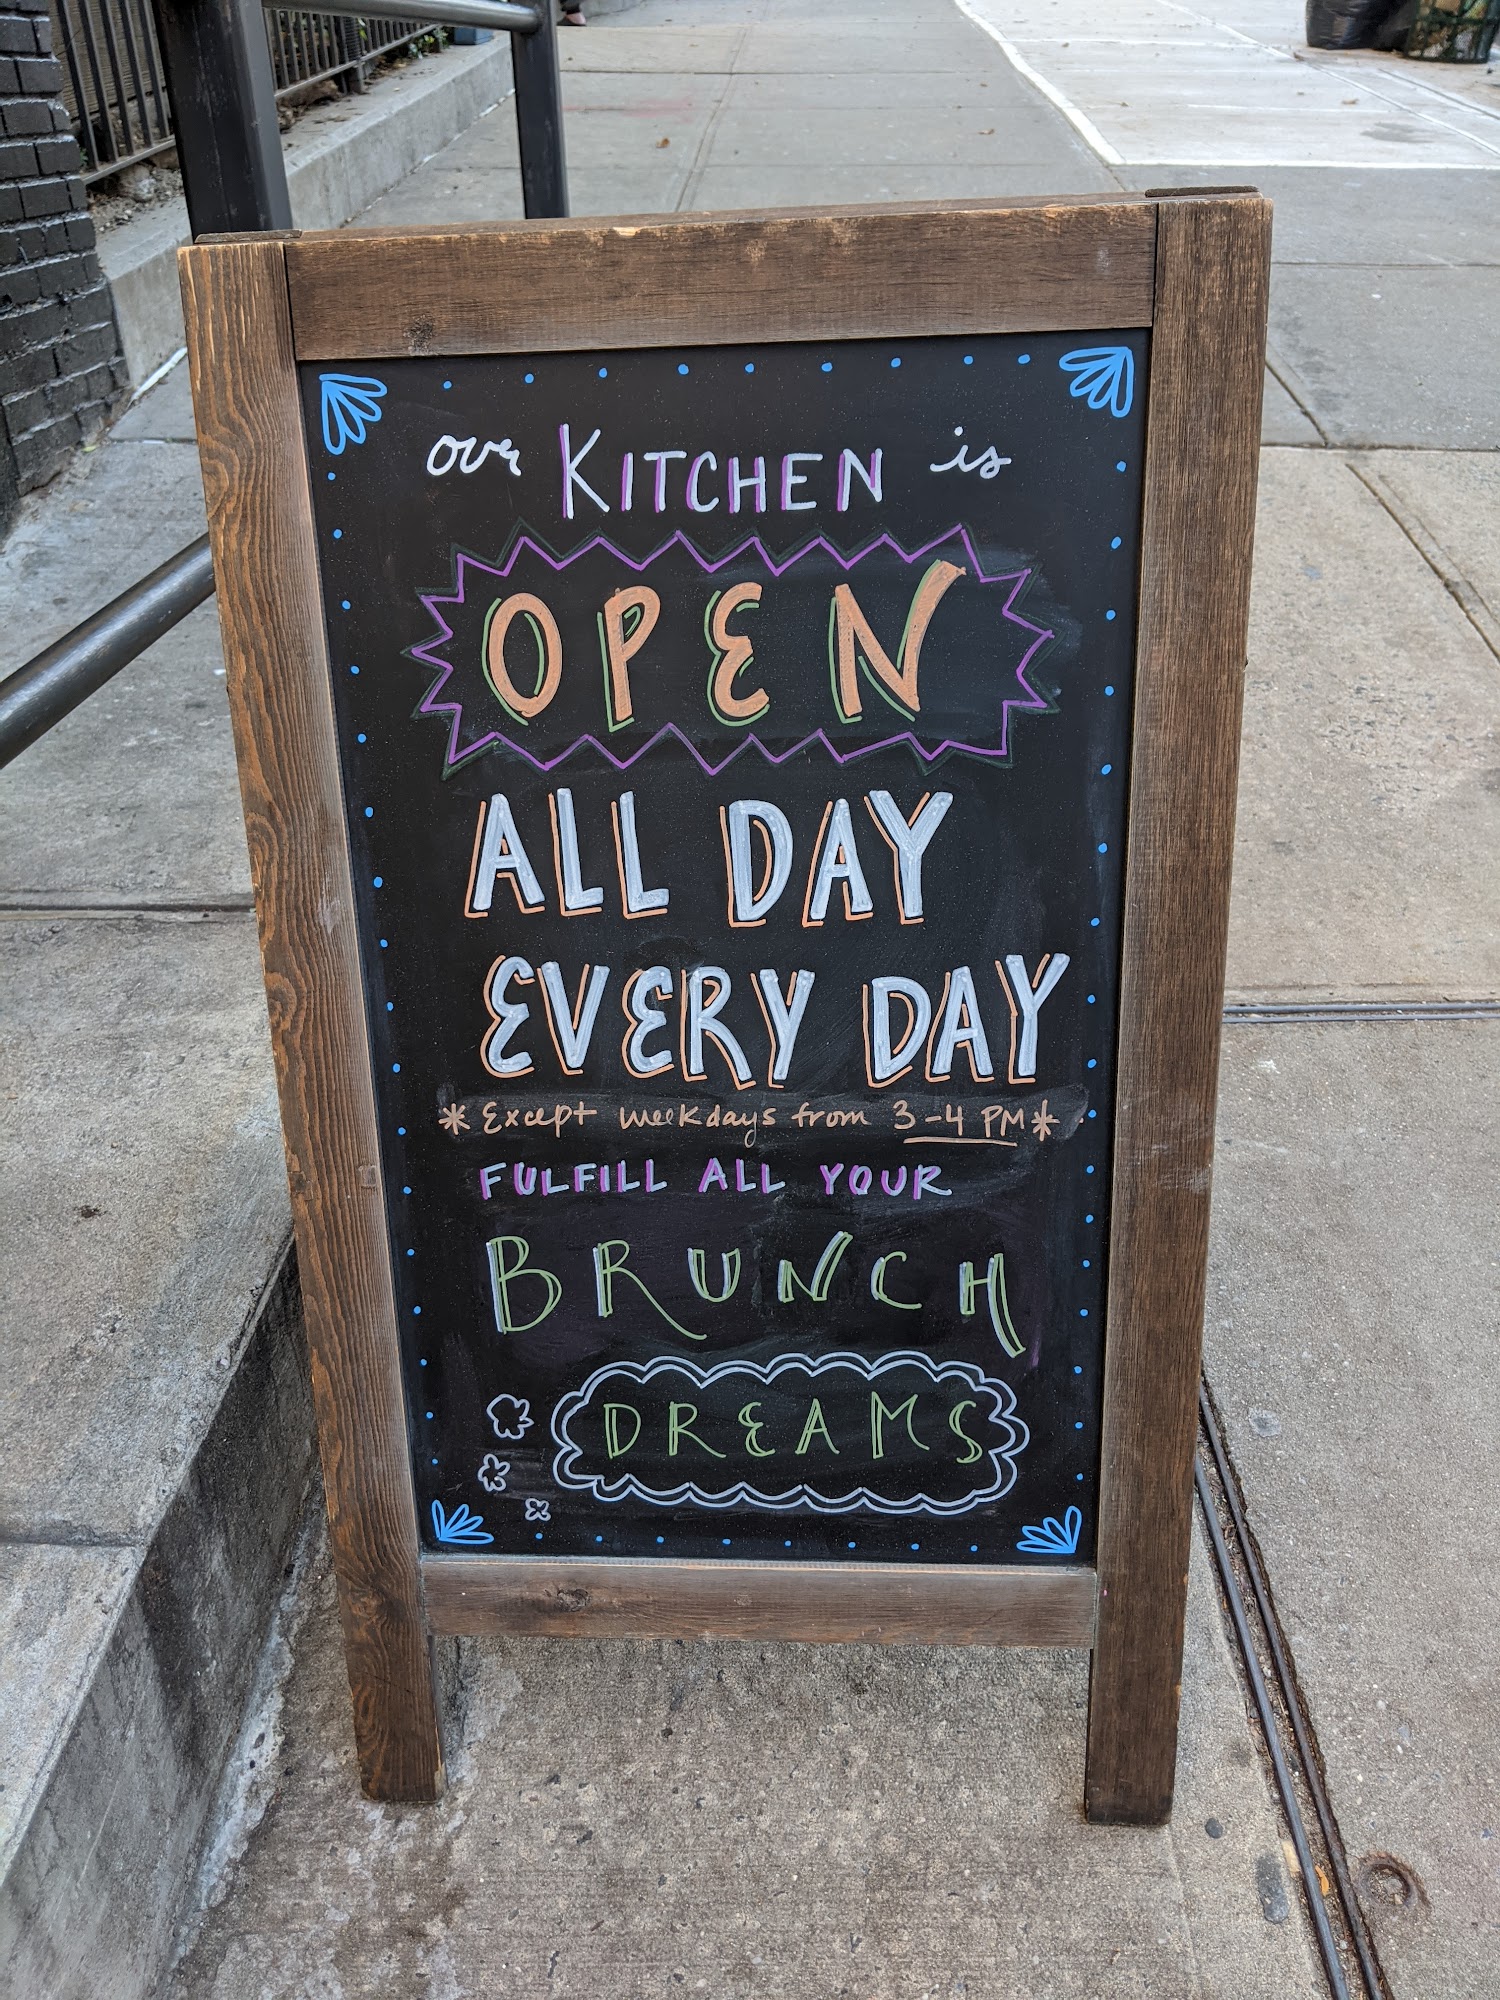 our KITCHEN is
OPEN
ALL DAY
EVERY DAY
*Except weekdays from 3-4 PM*
FULFILL ALL YOUR
BRUNCH
DREAMS